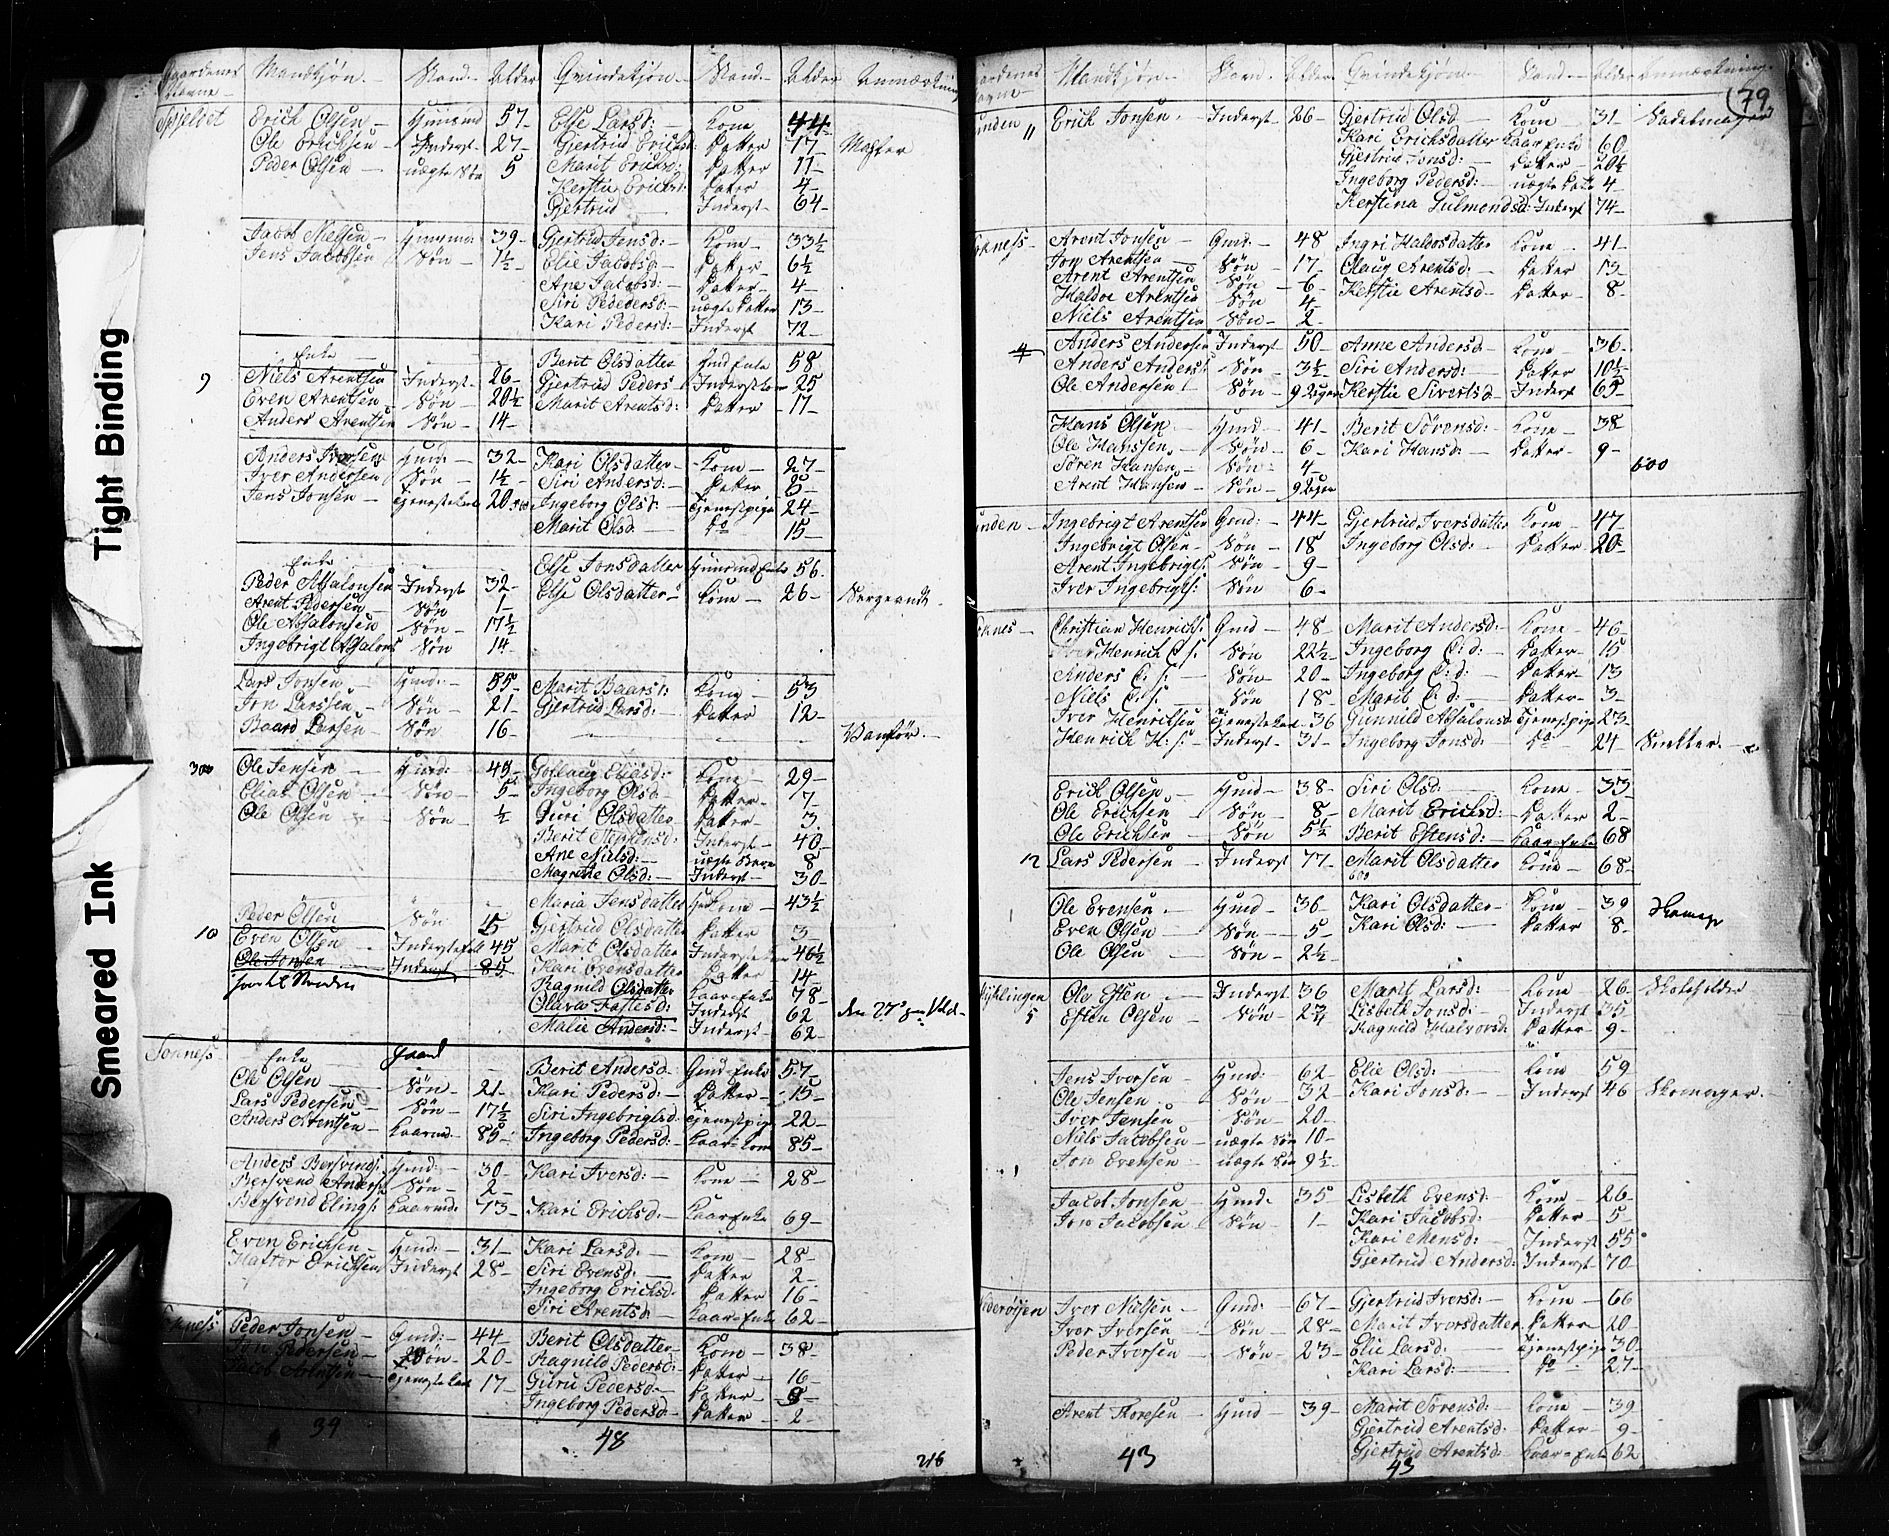 Tight Binding
Smeared Ink
Gaardenes Navne Mandkjøn. Stand. Alder Qvindekjøn Stand. Alder Anmærkning
Erick Olsen Huusmd 57 Else Larsd: Kone 44
Ole Erichsen Inderst 27 Gjertrud Ericksd: Datter 17
Peder Olsen uægte Søn 5 Marit Ericksd: Datter 11
Kerstie Ericksd: Datter 4
Gjertrud Inderst 64
Jacob Nielsen Huusmd 39 Gjertrud Jensd: Kone 33½
Jens Jacobsen Søn 1½ Elie Jacobsd Datter 6½
Ane Jacobsd: Datter 4
Siri Pededersd uægte Datter 13
Kari Pedersd: Inderst 72
Enke Berit Olsdatter Huusmd Enke 58
9 Niels Arentsen Inderst 26 Gjertrud Peders Inderst 25
Even Arentsen Søn 20½ Marit Arentsd: Datter 17
Anders Arentsen Søn 14
Anders Huusmd 32 Kari Olsdatter Kone 27
Iver Andersen Søn 1½ Siri Andersd: Datter 5
Jens Jonsen Tjenestekarl 20 Ingeborg Olsd: Tjenestpige 24
Marit Olsd do 15
Enke Else Jonsdatter Huusmd Enke 56
Peder Absalonsen Inderst 32 Else Olsdatter Kone 26 Sergeandt
Arent Pedersen Søn 1
Ole Absalonsen Søn 17½
Ingebrigt Absalons Søn 14
Lars Jonsen Husmd: 55 Marit Baarsd: Kone 53
Jon Larssen Søn 21 Gjertrud Larsd: Datter 12
Baard Larsen Søn 16 Vanfør.
300 Ole Jensen Husmd: 45 Eliasd: Kone 29
Elias Olsen Søn 5 Ingeborg Olsd Datter 7
Ole Olsen Søn ½ Guri Olsdatter Datter 3
Berit Inderst 40
Ane Nielsd: uægte 8
Magrethe Olsd: Inderst 30
Maria Jensdatter Kone 43½
Peder Olsen Søn 5 Gjertrud Olsdatter Datter 3
10 Even Olsen Inderst 45 Marit Olsdatter Inderst 46½
Ole Jonsen Inderst 85 Kari Evensdatter Datter 14
Ragnild Olsdatter Kaar-Enke 78
Oliva Inderst 62
Malie Andersd: Inderst 62
Enke Gaard Berit Andersd Gmd-Enke 57
Ole Olsen Søn 21 Kari Pedersd: Datter 15
Lars Pedersen Søn 17½ Siri Ingebrigtsd Tjenestpige 22
Anders Arentsen Kaarmd. 85 Ingeborg Pedersd: Kaar-Kone 85
Anders Bersvends: Husmd: 30 Kari Iversd: Kone 28
Bersvend Anders: Søn 2
Bersvend Elings: Kaarmd: 73 Kari Ericksd: Kaar-Enke 69
Even Ericksen Husmd: 31 Kari Larsd: Kone 28
Haftor Ericksen Inderst 28 Siri Evensd: Datter 2
Ingeborg Ericksd: Datter 16
Siri Arentsd: Kaar-Enke 62
Peder Jonsen Gmd: 44 Berit Olsdatter Kone 38
Jon Pedersen Søn 20 Ragnild Pedersd: Datter 16
Tjenestekarl 17 Guru Pedersd: Datter
Ingeborg Pedersd: Datter 2
39 48 216
Mandkjøn. Stand. Alder. Qvindekjøn Stand. Alder Anmærkning.
79
11 Erick Jonsen Inderst 26 Gjertrud Olsd Kone 31 Sadelmager
Kari Ericksdatter Kaar Enke 60
Gjertrud Jonsd: Datter 20½
Ingeborg Pedersd: uægte Dat 4
Kerstina Inderst 74
Arent Jonsen Gmd: 48 Ingri Haldosdatter Kone 41
Jon Arentsen Søn 17 Olaug Arentsd: Datter 13
Arent Arentsen Søn 6 Kerstie Arentsd Datter 8
Haldoe Arentsen Søn 4
Niels Arentsen Søn 2
4 Anders Andersen Inderst 50 Anne Andersd Kone 36
Anders Anders: Søn 3½ Siri Andersd: Datter 10½
Ole Andersen Søn 9 Uger Kerstie Sivertsd Inderst 65
Hans Olsen Husmd 41 Berit Sørensd: Kone 38
Ole Hanssen Søn 6 Kari Hansd: Datter 9
Søren Hansen Søn 4 600
Arent Hansen Søn 9 Uger
Ingebrigt Arentsen Gmd: 44 Gjertrud Iversdatter Kone 47
Ingebrigt Olsen Søn 18 Ingeborg Olsd: Datter 20
Arent Ingebrigts: Søn 9
Iver Ingebrigts: Søn 6
Christian Henrichs: Gmd 48 Marit Andersd: Kone 46
Henrich C. s: Søn 22½ Ingeborg C: d: Datter 15
Anders C. s: Søn 20 Ingeborg C: d: Datter 13
Niels C. s: Søn 18 Marit C: d: Datter 3
Iver Henrichsen Tjenestekarl 36 Gunnild Absalonsd Tjenestpige 23
Henrich H. s: Inderst 31 Ingeborg Jonsd: do 24 Snekker.
Erick Olsen Husmd 38 Siri Olsd: Kone 33
Ole Ericksen Søn 8 Marit Ericksd: Datter 2
Ole Ericksen Søn 5½ Berit Estensd: Kaar-Enke 68
12 Lars Pedersen Inderst 77 Marit Olsdatter Kone 68
600
Ole Evensen Husmd 36 Kari Olsdatter Kone 39
Even Olsen Søn 5 Kari Olsd: Datter 8
Ole Olsen Søn 2½
5 Ole Esten Inderst 36 Marit Larsd: Kone 26 Skoleholder
Esten Olsen Søn 2¾ Lisbeth Jonsd: Inderst 35
Ragnild Halvorsd: Datter 9
Jens Iversen Husmd: 62 Elie Olsd: Kone 59
Ole Jensen Søn 32 Kari Jonsd: Inderst 46 Skomager.
Iver Jensen Søn 20
Niels Jacobsen uægte Søn 10
Jon Evensen uægte Søn 9½
Jacob Jonsen Husmd: 35 Lisbeth Evensd: Kone 26
Jon Jacobsen Søn 1 Kari Jacobsd: Datter 5
Kari Inderst 55
Gjertrud Andersd: Inderst 70
Iver Nielsen Gmd: 67 Gjertrud Iversd: Kone 66
Iver Iversen Søn 28 Marit Iversdatter Datter 20
Peder Iversen Søn 23 Elie Larsd: Tjenestpige 30
Kari Larsd: do 27
Arent Toresen Husmd 39 Marit Sørensd: Kone 39
Gjertrud Arentsd: Datter 9
Gjertrud Arentsd: Kaar-Enke 62
43 43